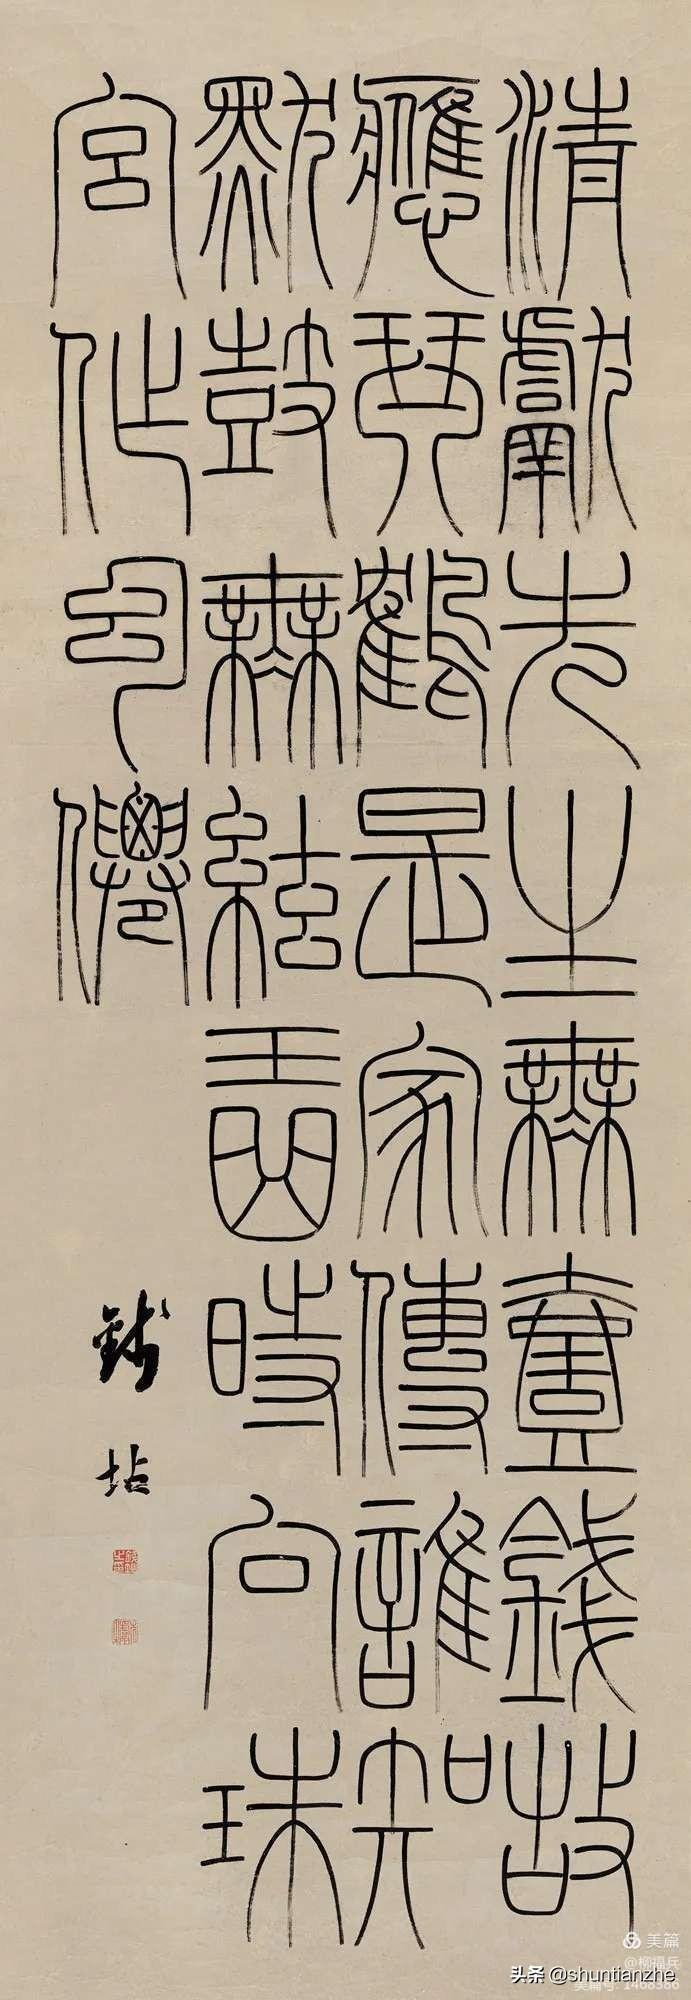 清獻先生無壹錢故
應琴鶴是家傳誰知
默鼓無絃曲時向珠
宮作幻僊
錢坫
美篇
@柳福兵
美篇号: 1468386
头条 @shuntianzhe